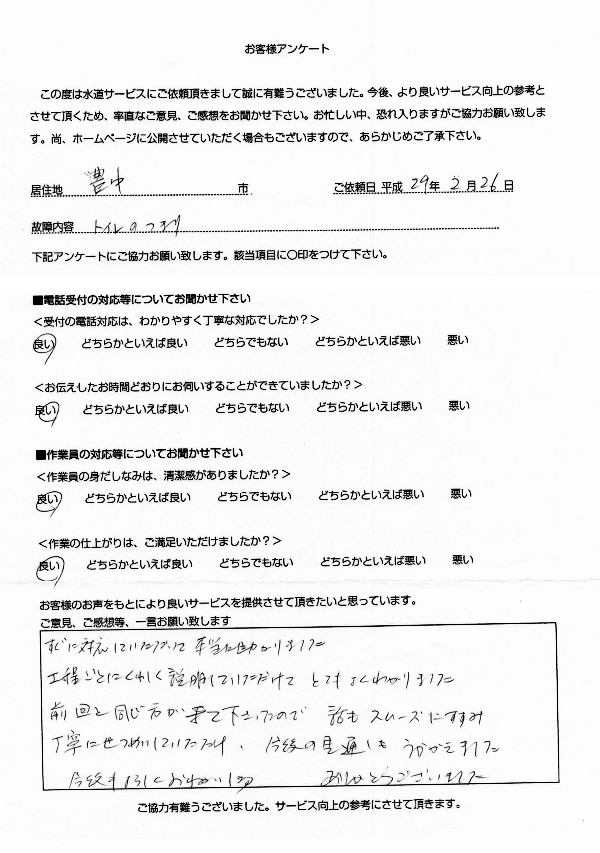 お客様アンケート
この度は水道サービスにご依頼頂きまして誠に有難うございました。今後、より良いサービス向上の参考と
させて頂くため、率直なご意見、ご感想をお聞かせ下さい。お忙しい中、恐れ入りますがご協力お願い致しま
す。尚、ホームページに公開させていただく場合もございますので、あらかじめご了承下さい。
居住地 豊中 市 ご依頼日 平成 29年 2月26日
故障内容 トイレのつまり
下記アンケートにご協力お願い致します。該当項目に〇印をつけて下さい。
■電話受付の対応等についてお聞かせ下さい
<受付の電話対応は、わかりやすく丁寧な対応でしたか?>
良い どちらかといえば良い どちらでもない どちらかといえば悪い 悪い
<お伝えしたお時間どおりにお伺いすることができていましたか?>
良い どちらかといえば良い どちらでもない どちらかといえば悪い 悪い
■作業員の対応等についてお聞かせ下さい
<作業員の身だしなみは、清潔感がありましたか?>
良い どちらかといえば良い どちらでもない どちらかといえば悪い 悪い
<作業の仕上がりは、ご満足いただけましたか?>
良い どちらかといえば良い どちらでもない どちらかといえば悪い 悪い
お客様のお声をもとにより良いサービスを提供させて頂きたいと思っています。
ご意見、ご感想等、一言お願い致します
すぐに対応していただいて 本当に助かりました
工程ごとにくわしく説明していただけて とてもよくわかりました
前回と同じ方が来て下さったので 話もスムーズにすすみ
丁寧にせつめいしていただけ、今後の見通しも うかがえました
今後もよろしくおねがいします ありがとうございました
ご協力有難うございました。サービス向上の参考にさせて頂きます。